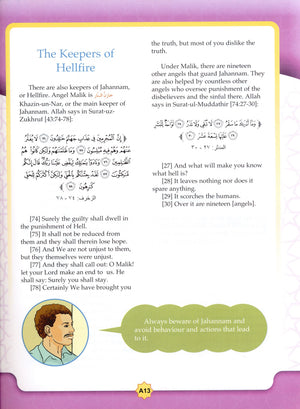 The Keepers of
Hellfire
There are also keepers of Jahannam,
or Hellfire. Angel Malik is
Khazin-un-Nar, or the main keeper of
Jahannam. Allah says in Surat-uz-
Zukhruf [43:74-78]:
الزخرف: ٧٤ - ٧٨
[74] Surely the guilty shall dwell in
the punishment of Hell.
[75] It shall not be reduced from
them and they shall therein lose hope.
[76] And We are not unjust to them,
but they themselves were unjust.
[77] And they shall call out: O Malik!
let your Lord make an end to us. He
shall say: Surely you shall stay.
[78] Certainly We have brought you
the truth, but most of you dislike the
truth.
Under Malik, there are nineteen
other angels that guard Jahannam. They
are also helped by countless other
angels who oversee punishment of the
disbelievers and the sinful there. Allah
says in Surat-ul-Muddathir [74:27-30]:
المدثر: ٢٧ - ٣٠
[27] And what will make you know
what hell is?
[28] It leaves nothing nor does it
spare anything.
[29] It scorches the humans.
[30] Over it are nineteen [angels].
Always beware of Jahannam and
avoid behaviour and actions that lead
to it.
A13